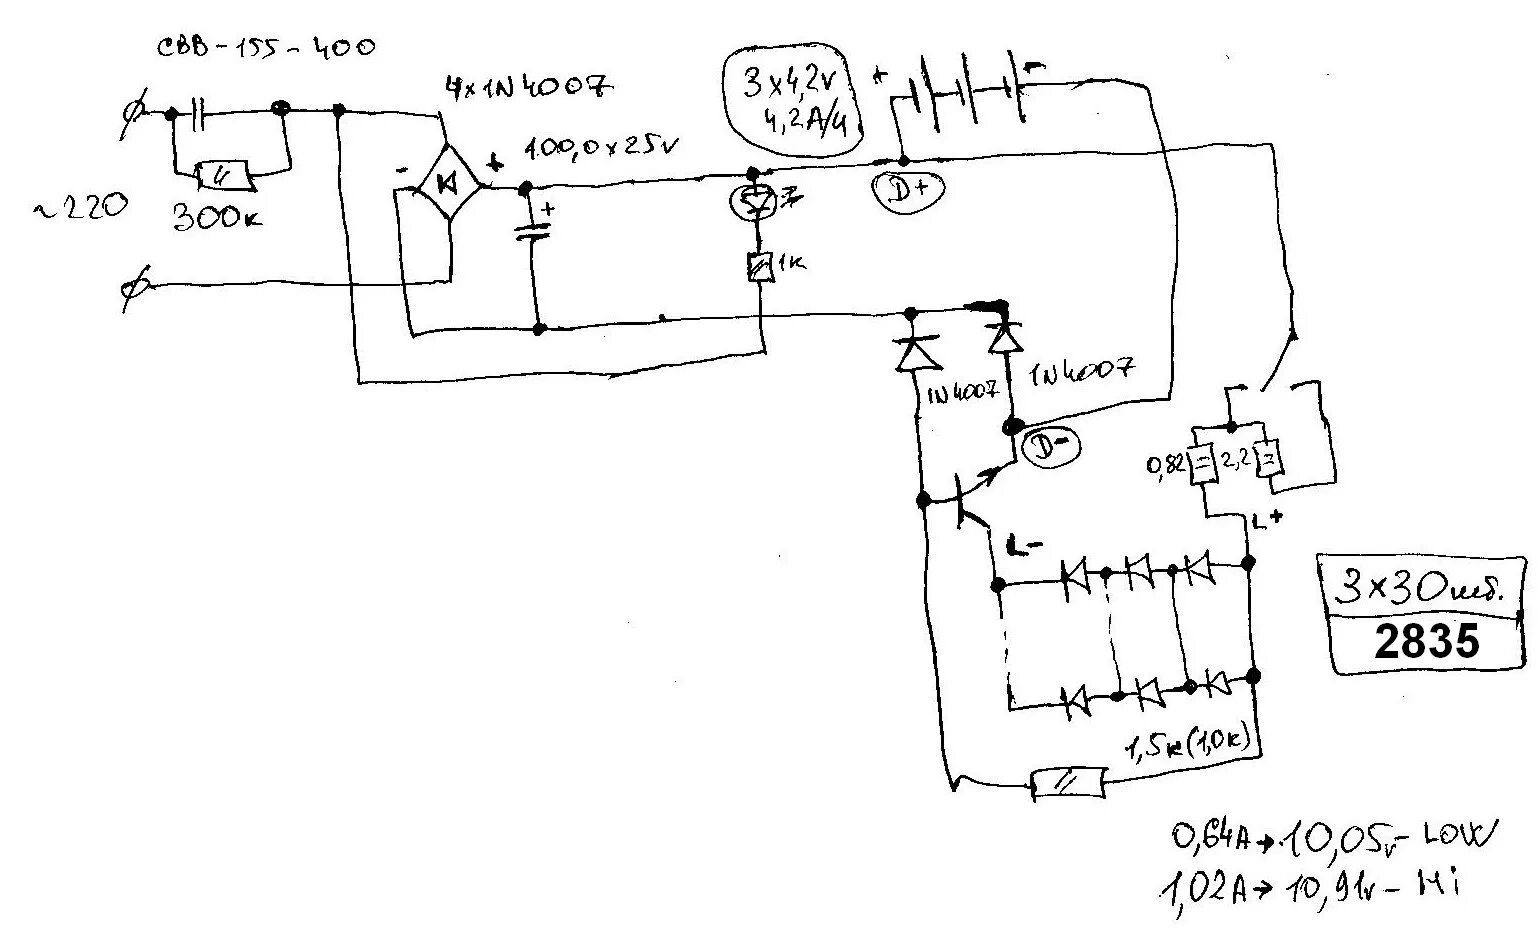 CBB-155-400
4x1N4007
100,0x25v
3x4,2v
4,2A/4
+
-
D+
~220
300к
-
+
+
1к
1N4007
1N4007
D-
0,82
2,2
L+
L-
3x30шт.
2835
1,5к(1,0к)
0,64A→10,05v-LOW
1,02A→10,91v-Hi